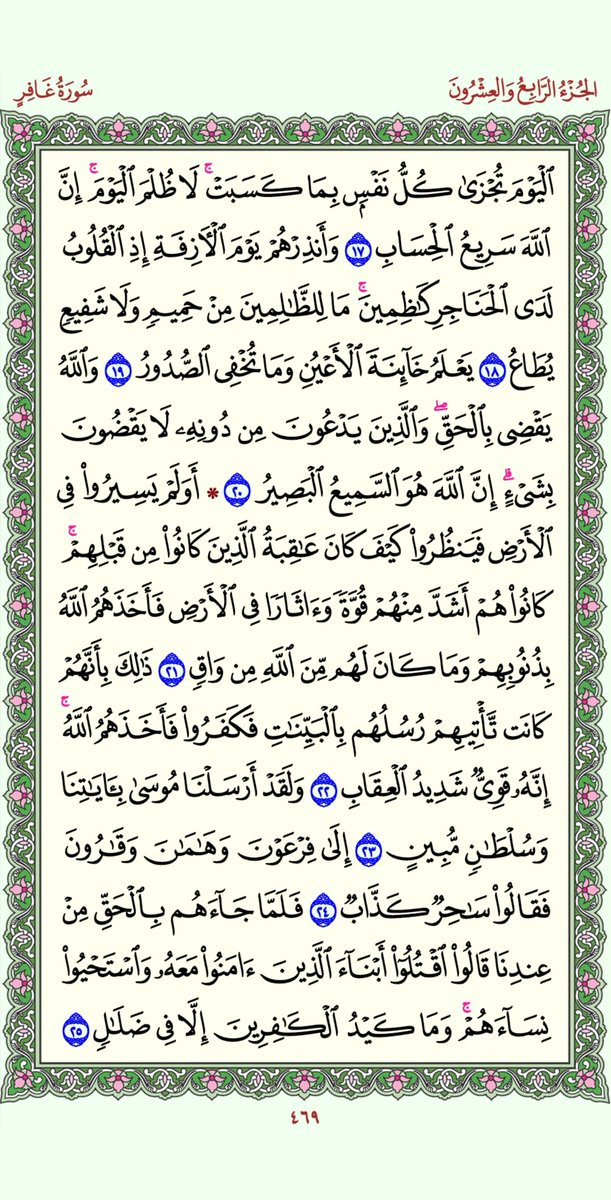 الجُزْءُ الرَّابِعُ وَالعِشْرُونَ سُورَةُ غَافِرٍ
ٱلْيَوْمَ تُجْزَىٰ كُلُّ نَفْسِۭ بِمَا كَسَبَتْ ۚ لَا ظُلْمَ ٱلْيَوْمَ ۚ إِنَّ
ٱللَّهَ سَرِيعُ ٱلْحِسَابِ ١٧ وَأَنذِرْهُمْ يَوْمَ ٱلْـَٔازِفَةِ إِذِ ٱلْقُلُوبُ
لَدَى ٱلْحَنَاجِرِ كَـٰظِمِينَ ۚ مَا لِلظَّـٰلِمِينَ مِنْ حَمِيمٍ وَلَا شَفِيعٍ
يُطَاعُ ١٨ يَعْلَمُ خَآئِنَةَ ٱلْأَعْيُنِ وَمَا تُخْفِى ٱلصُّدُورُ ١٩ وَٱللَّهُ
يَقْضِى بِٱلْحَقِّ ۖ وَٱلَّذِينَ يَدْعُونَ مِن دُونِهِۦ لَا يَقْضُونَ
بِشَىْءٍ ۗ إِنَّ ٱللَّهَ هُوَ ٱلسَّمِيعُ ٱلْبَصِيرُ ٢٠ * أَوَلَمْ يَسِيرُوا۟ فِى
ٱلْأَرْضِ فَيَنظُرُوا۟ كَيْفَ كَانَ عَـٰقِبَةُ ٱلَّذِينَ كَانُوا۟ مِن قَبْلِهِمْ ۚ
كَانُوا۟ هُمْ أَشَدَّ مِنْهُمْ قُوَّةً وَءَاثَارًا فِى ٱلْأَرْضِ فَأَخَذَهُمُ ٱللَّهُ
بِذُنُوبِهِمْ وَمَا كَانَ لَهُم مِّنَ ٱللَّهِ مِن وَاقٍ ٢١ ذَٰلِكَ بِأَنَّهُمْ
كَانَت تَّأْتِيهِمْ رُسُلُهُم بِٱلْبَيِّنَـٰتِ فَكَفَرُوا۟ فَأَخَذَهُمُ ٱللَّهُ ۚ
إِنَّهُۥ قَوِىٌّ شَدِيدُ ٱلْعِقَابِ ٢٢ وَلَقَدْ أَرْسَلْنَا مُوسَىٰ بِـَٔايَـٰتِنَا
وَسُلْطَـٰنٍ مُّبِينٍ ٢٣ إِلَىٰ فِرْعَوْنَ وَهَـٰمَـٰنَ وَقَـٰرُونَ
فَقَالُوا۟ سَـٰحِرٌ كَذَّابٌ ٢٤ فَلَمَّا جَآءَهُم بِٱلْحَقِّ مِنْ
عِندِنَا قَالُوا۟ ٱقْتُلُوٓا۟ أَبْنَآءَ ٱلَّذِينَ ءَامَنُوا۟ مَعَهُۥ وَٱسْتَحْيُوا۟
نِسَآءَهُمْ ۚ وَمَا كَيْدُ ٱلْكَـٰفِرِينَ إِلَّا فِى ضَلَـٰلٍ ٢٥
٤٦٩